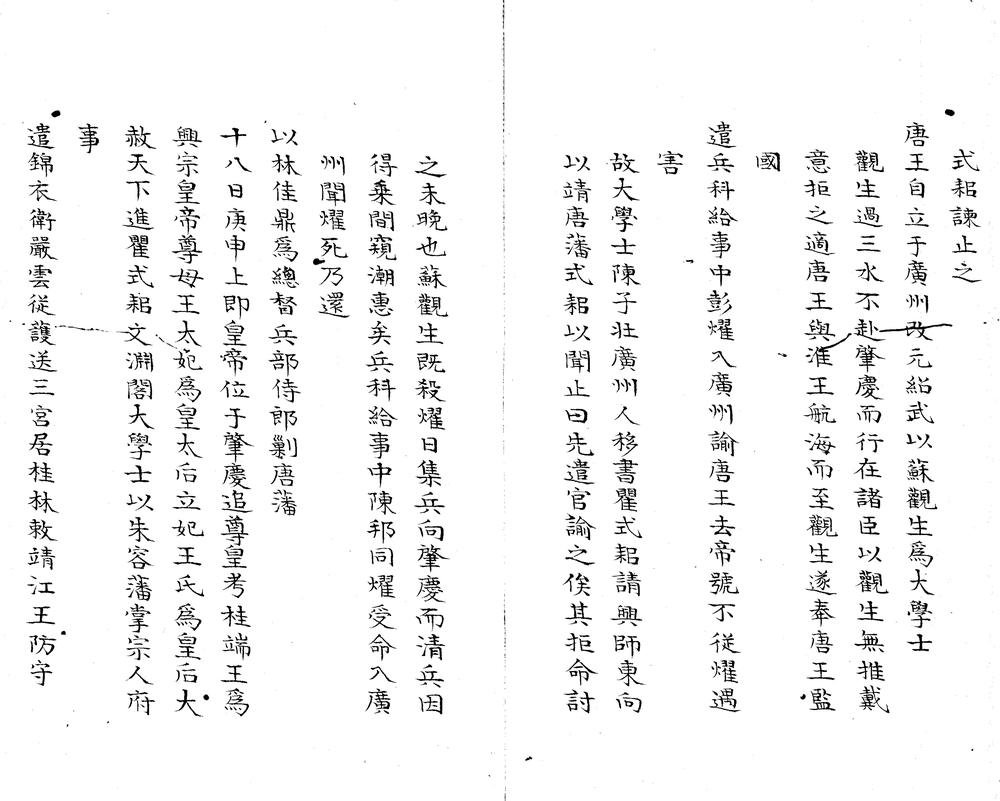 式耜諫止之
唐王自立于廣州改元紹武以蘇觀生爲大學士
觀生過三水不赴肇慶而行在諸臣以觀生無推戴
意拒之適唐王與淮王航海而至觀生遂奉唐王監
國
遣兵科給事中彭燿入廣州諭唐王去帝號不從燿遇
害
故大學士陳子壯廣州人移書瞿式耜請興師東向
以靖唐藩式耜以聞止曰先遣官諭之俟其拒命討
之未晚也蘇觀生既殺燿日集兵向肇慶而清兵因
得乗間窺潮惠矣兵科給事中陳邦同燿受命入廣
州聞燿死乃還
以林佳鼎爲總督兵部侍郎剿唐藩
十八日庚申上即皇帝位于肇慶追尊皇考桂端王爲
興宗皇帝尊母王太妃爲皇太后立妃王氏爲皇后大
赦天下進瞿式耜文淵閣大學士以朱容藩掌宗人府
事
遣錦衣衛嚴雲従護送三宮居桂林敕靖江王防守